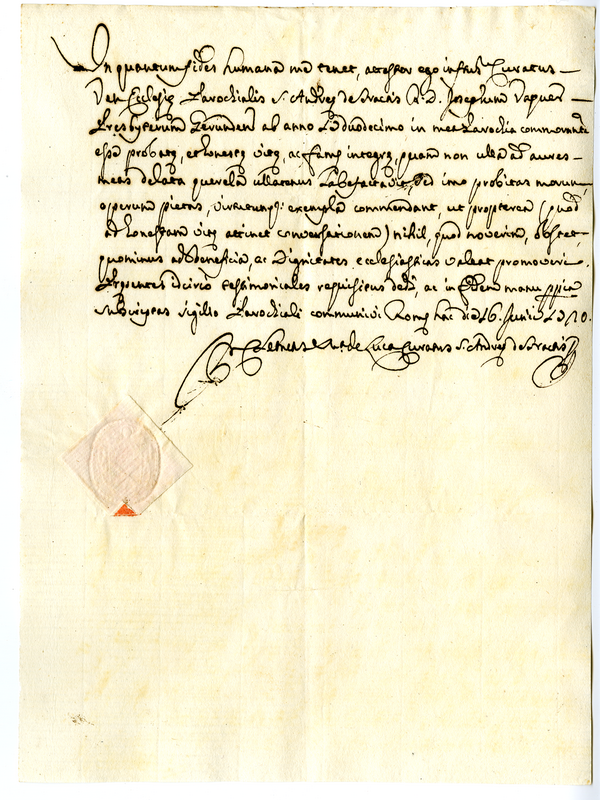 In quantum fides humana me tenet, attestor ego infrũs Curatus
Ven Ecclesię Parochialis S. Andreę de Fractis R. D. Josephum
Presbyterum Gerunden ab anno in mea Parochia commorante
esse probatę, et honestę vitę, ac famę integrę, quam non ulla ad aures
meas delata querela ullatenus labefactavit, sed imo probitas morum,
operum pietas, virtutumq: exempla commendant, ut propterea (quod
ad honestam vitę attinet conversationem) nihil, quod noverim, obstet,
quominus ad beneficia, ac Dignitates ecclesiasticas valeat promoveri.
Pręsentes idcirco testimoniales requisitus dedi, ac in fidem manu ppria
subscriptas sigillo Parochiali communivi. Romę hac die 16. Junii
de Luca Curatus S. Andreę de Fractis